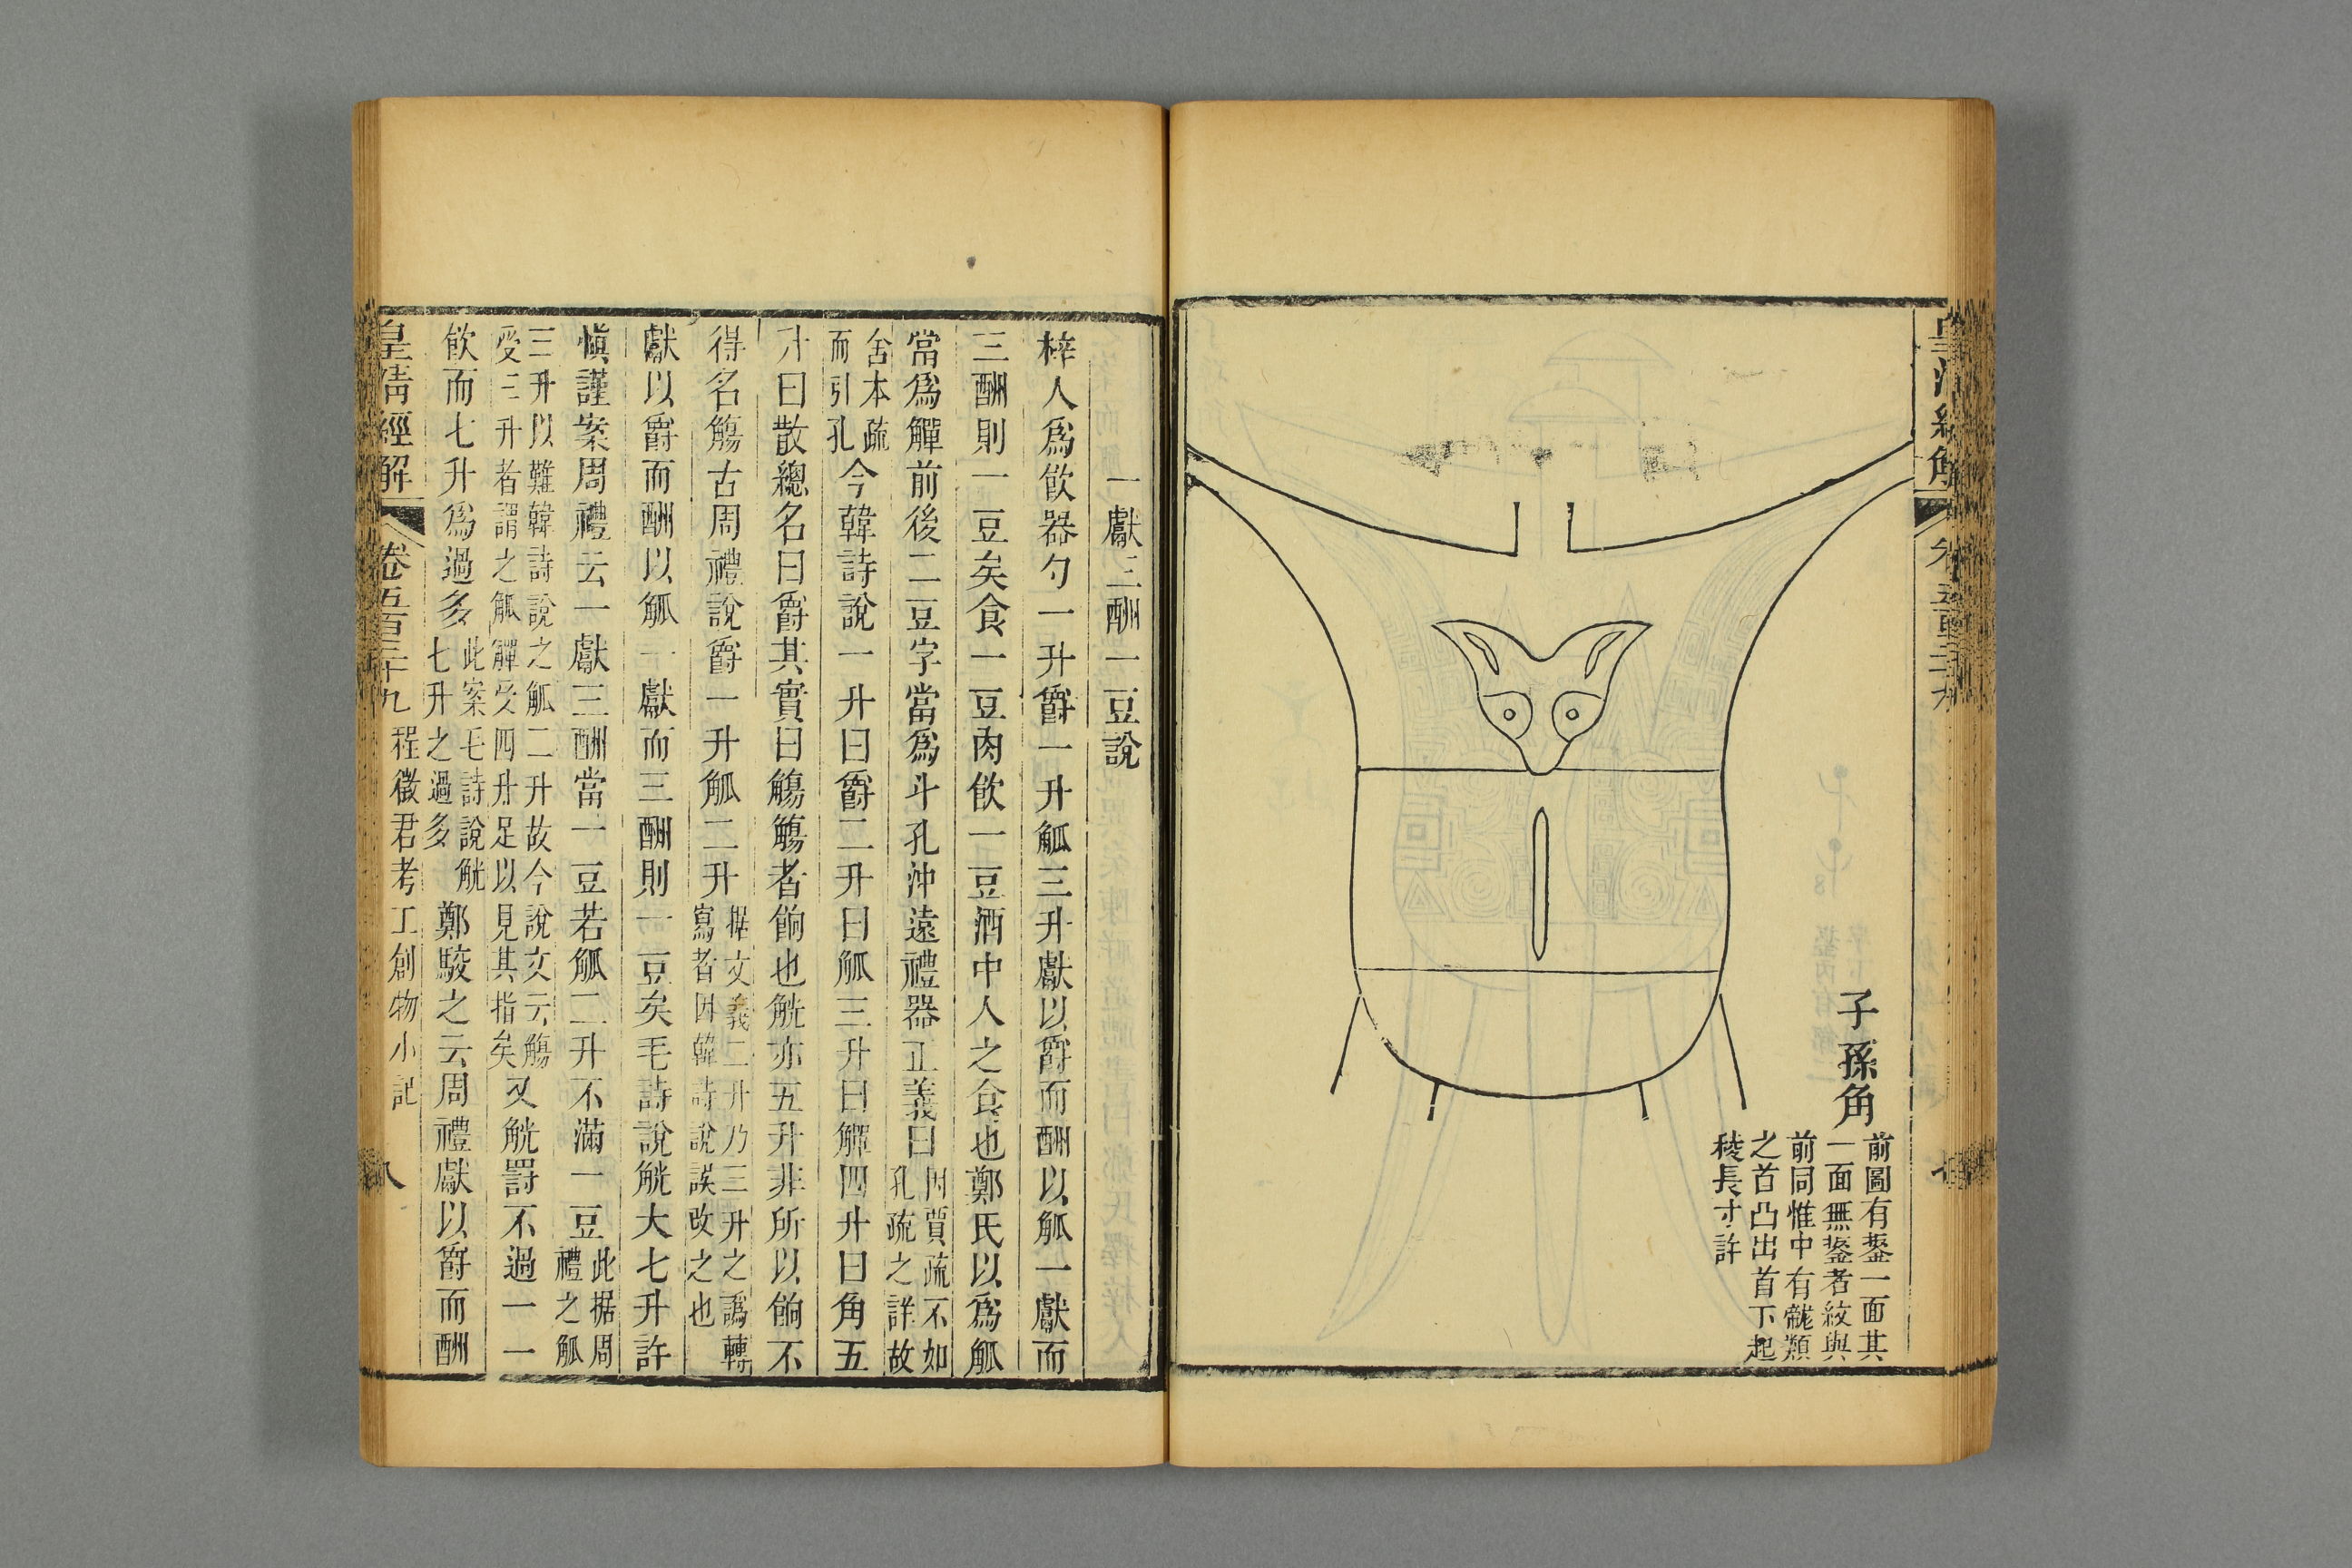 皇清經解
子孫角
前圖有鋬一面其
一面無鋬者紋與
前同惟中有龍類
之首凸出首下起
稜長寸許
一獻三酬一豆說
梓人爲飮器勺一升爵一升觚三升獻以爵而酬以觚一獻而
三酬則一豆矣食一豆肉飮一豆酒中人之食也鄭氏以爲觚
當爲觶前後二豆字當爲斗孔沖遠禮器正義曰
因賈疏不如
孔疏之詳故
舍本疏
而引孔
今韓詩說一升曰爵二升曰觚三升曰觶四升曰角五
升曰散總名曰爵其實曰觴觴者餉也觥亦五升非所以餉不
得名觴古周禮說爵一升觚二升
据文義二升乃三升之譌轉
寫者因韓詩說誤改之也
獻以爵而酬以觚一獻而三酬則一豆矣毛詩說觥大七升許
愼謹案周禮云一獻三酬當一豆若觚二升不滿一豆
此据周
禮之觚
三升以難韓詩說之觚二升故今說文云觴
受三升者謂之觚觶受四升足以見其指矣
又觥罰不過一一
飮而七升爲過多
此案毛詩說觥
七升之過多
鄭駮之云周禮獻以爵而酬
皇清經解
卷五百三十九
程徵君考工創物小記
八